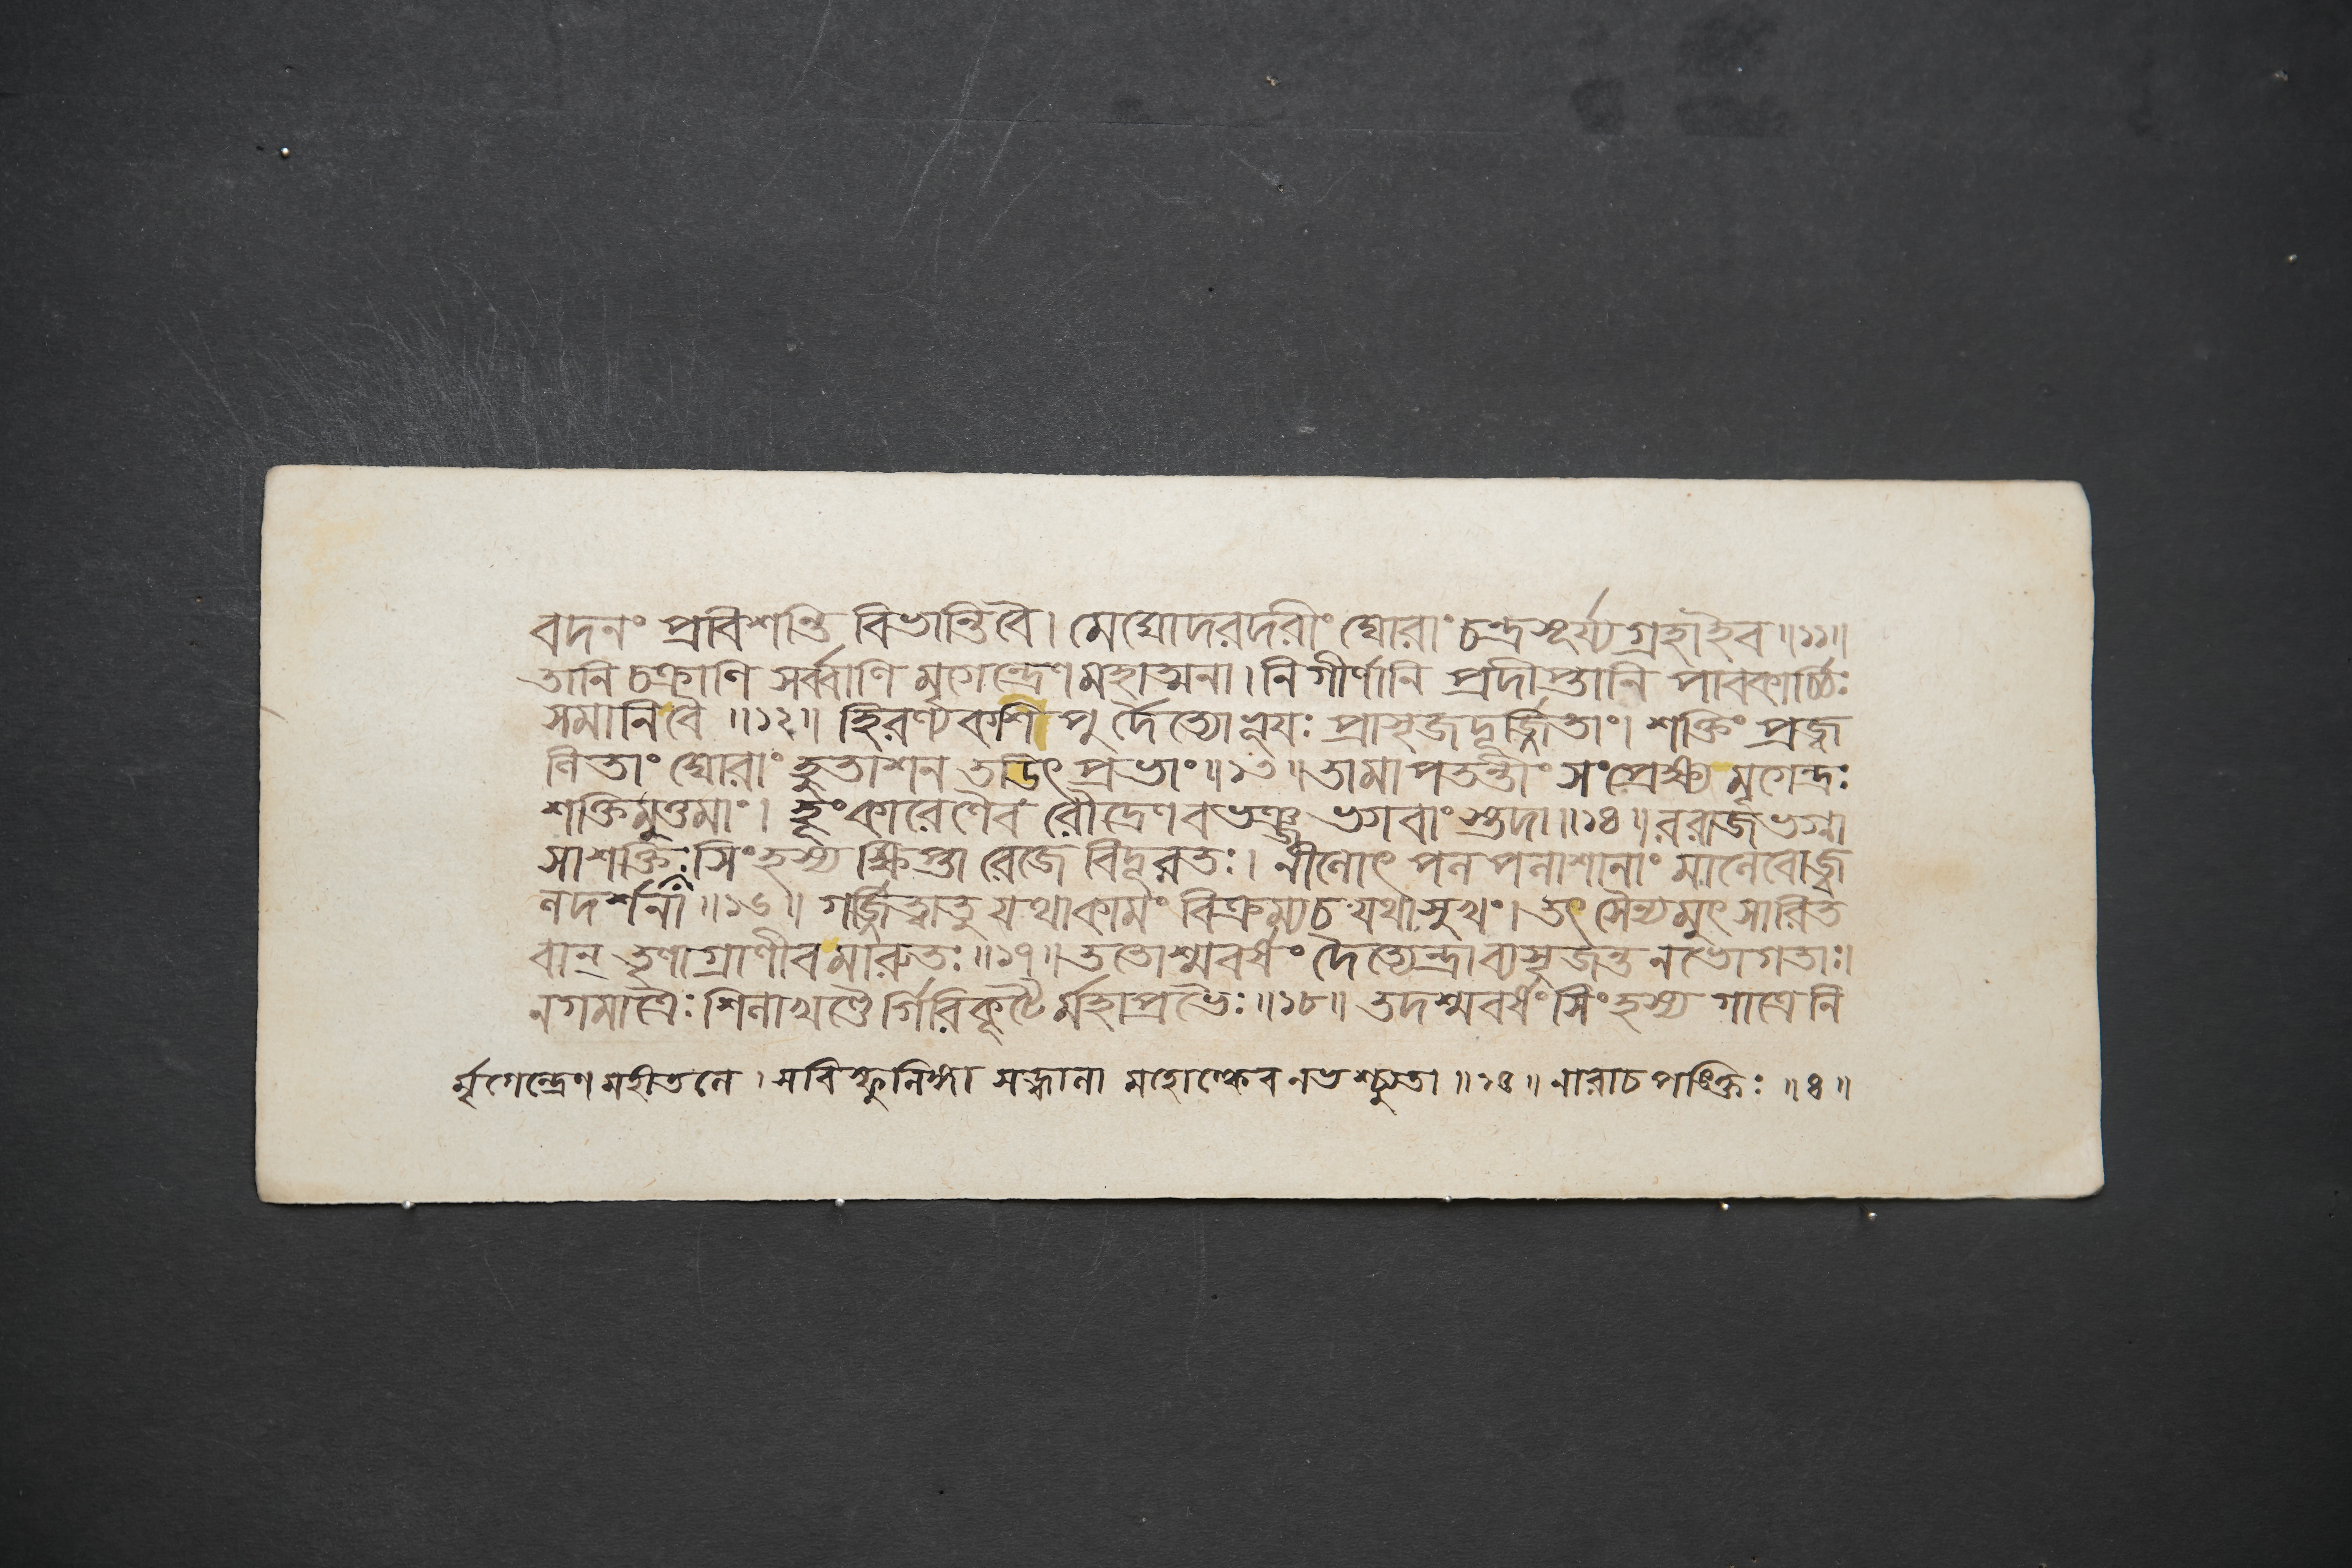 বদনং প্রবিশন্তি বিভান্তিবৈ। মেঘোদরদরীং ঘোরাং চন্দ্রসূর্য্যগ্রহাইব॥১১॥
তানি চক্রাণি সর্ব্বাণি মৃগেন্দ্রেণমহাত্মনা। নিগীর্ণানি প্রদীপ্তানি পাবকার্চ্চিঃ
সমানিবৈ ॥১২॥ হিরণ্যকশিপুর্দৈত্যোভূয়ঃ প্রাসৃজদূর্জ্জিতাং। শক্তিং প্রজ্ব
লিতাং ঘোরাং হুতাশন তডিৎ প্রভাং॥১৩॥তামাপতন্তীং সংপ্রেক্ষ্য মৃগেন্দ্রঃ
শক্তিমুত্তমাং। হূংকারেণৈব রৌদ্রেণবভঞ্জ ভগবাংস্তদা॥১৪॥ররাজভগ্না
সাশক্তিঃসিংহস্য ক্ষিপ্তা রেজে বিদূরতঃ। নীলোৎ পল পলাশানাং মালেবোজ্জ্ব
লদর্শনা॥১৬॥ গর্জ্জিত্বাতু যথাকামং বিক্রম্যচ যথাসুখং। তৎ সৈন্যমুৎ সারিত
বান্ তৃণাগ্রাণীবমারুতঃ॥১৭॥ততোশ্মবর্ষং দৈত্যেন্দ্রাব্যসৃজন্ত নভোগতাঃ।
নগমাত্রৈঃ শিলাখণ্ডৈর্গিরিকূটৈর্মহাপ্রভৈঃ॥১৮॥ তদশ্মবর্ষংসিংহস্য গাত্রেনি
র্মৃগেন্দ্রেণমহীতলে। সবিস্ফুলিঙ্গা মহোল্কেব নভশ্চ্যুতা॥১৫॥নারাচপঙ্‌ক্তিঃ ॥৪॥